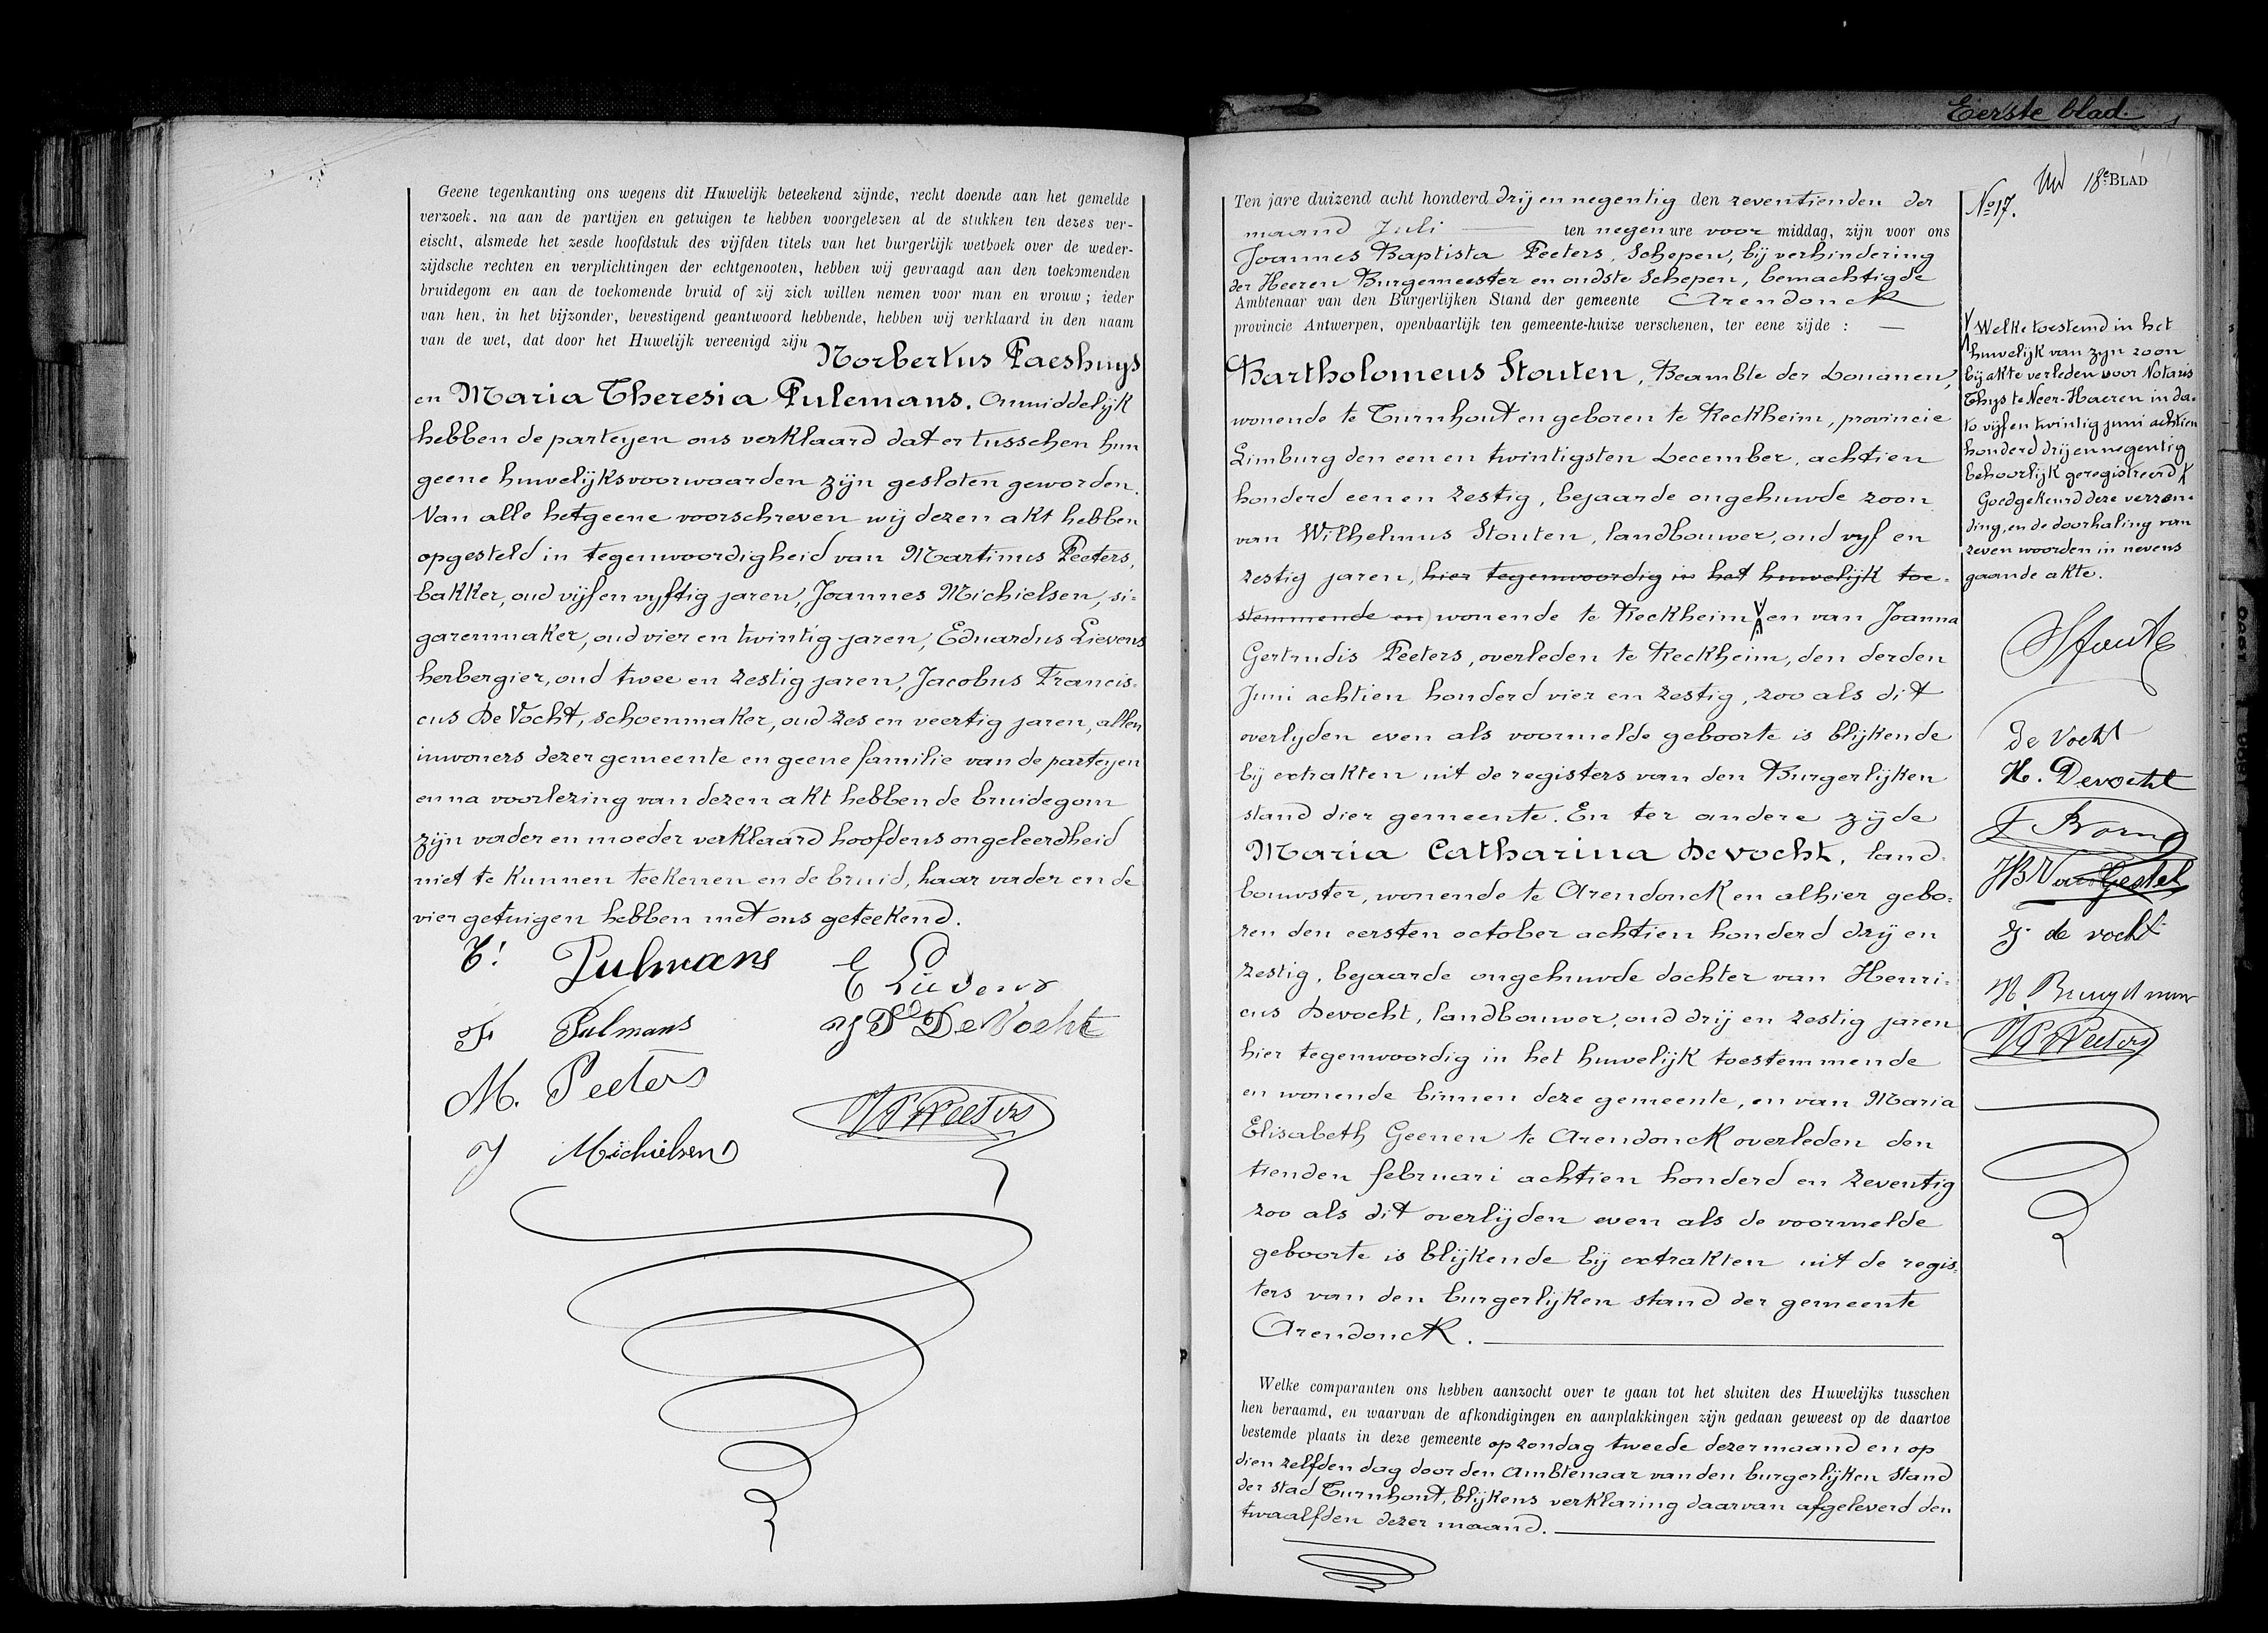 Geene tegenkanting ons wegens dit Huwelijk beteekend zijnde, recht doende aan het gemelde
verzoek. na aan de partijen en getuigen te hebben voorgelezen al de stukken ten dezes ver-
eischt, alsmede het zesde hoofdstuk des vijfden titels van het burgerlijk wetboek over de weder-
zijdsche rechten en verplichtingen der echtgenooten, hebben wij gevraagd aan den toekomenden
bruidegom en aan de toekomende bruid of zij zich willen nemen voor man en vrouw; ieder
van hen, in het bijzonder, bevestigend geantwoord hebbende, hebben wij verklaard in den naam
van de wet, dat door het Huwelijk vereenigd zijn Norbertus Paeshuys
en Maria Theresia Pulemans. Onmiddelijk
hebben de parteyen ons verklaard dat er tusschen hun
geene huwelijksvoorwaarden zijn gesloten geworden.
Van alle hetgeene voorschreven wij dezen akt hebben
opgesteld in tegenwoordigheid van Martinus Peeters,
bakker, oud vijf en vyftig jaren, Joannes Michielsen, si=
garenmaker, oud vier en twintig jaren, Eduardus Lievens
herbergier, oud twee en zestig jaren, Jacobus Francis=
cus De Vocht, schoenmaker, oud zes en veertig jaren, allen
inwoners dezer gemeente en geene familie van de parteyen
en na voorlezing van dezen akt hebben de bruidegom
zijn vader en moeder verklaard hoofdens ongeleerdheid
niet te kunnen teekenen en de bruid, haar vader en de
vier getuigen hebben met ons geteekend.
T! Pulmans E Lievens
F Pulmans J Fs De Vocht
M. Peeters
JB Peeters
J Michielsen
Eerste blad.
18e BLAD
Ten jare duizend acht honderd drij en negentig den zeventienden der
maand Juli ten negen ure voor middag, zijn voor ons
Joannes Baptista Peeters, Schepen, bij verhindering
der Heeren Burgemeester en oudste Schepen, bemachtigde
Ambtenaar van den Burgerlijken Stand der gemeente Arendonck
provincie Antwerpen, openbaarlijk ten gemeente-huize verschenen, ter eene zijde :
Bartholomeus Stouten, Beambte der Douanen,
wonende te Turnhout en geboren te Reckheim, provincie
Limburg den een en twintigsten December, achtien
honderd een en zestig, bejaarde ongehuwde zoon
van Wilhelmus Stouten, landbouwer, oud vyf en
zestig jaren, hier tegenwoordig in het huwelijk toe=
stemmende en wonende te Reckheim en van Joanna
Gertrudis Peeters, overleden te Reckheim, den derden
Juni achtien honderd vier en zestig, zoo als dit
overlyden even als voormelde geboorte is blijkende
bij extrakten uit de registers van den Burgerlijken
stand dier gemeente. En ter andere zijde
Maria Catharina Devocht, land=
bouwster, wonende te Arendonck en alhier gebo=
ren den eersten october achtien honderd drij en
zestig, bejaarde ongehuwde dochter van Henri=
cus Devocht, landbouwer, oud drij en zestig jaren
hier tegenwoordig in het huwelijk toestemmende
en wonende binnen deze gemeente, en van Maria
Elisabeth Geenen te Arendonck overleden den
tienden februari achtien honderd en zeventig
zoo als dit overlijden even als de voormelde
geboorte is blijkende bij extrakten uit de regis=
ters van den burgerlijken stand der gemeente
Arendonck.
Welke comparanten ons hebben aanzocht over te gaan tot het sluiten des Huwelijks tusschen
hen beraamd, en waarvan de afkondigingen en aanplakkingen zijn gedaan geweest op de daartoe
bestemde plaats in deze gemeente op zondag tweede dezer maand en op
dien zelfden dag door den Ambtenaar van den burgerlijken Stand
der stad Turnhout, blijkens verklaring daarvan afgeleverd den
twaalfden dezer maand.
No 17.
Welke toestemd in het
huwelijk van zyn zoon
bij akte verleden voor Notaris
Thys te Neer-Haeren in da=
to vijf en twintig juni achtien
honderd drij en negentig
behoorlijk geregistreerd
Goedgekeurd deze verzen=
ding, en de doorhaling van
zeven woorden in nevens
gaande akte.
De Vocht
H. Devocht
JB Van Gestel
J. de vocht
JB Peeters